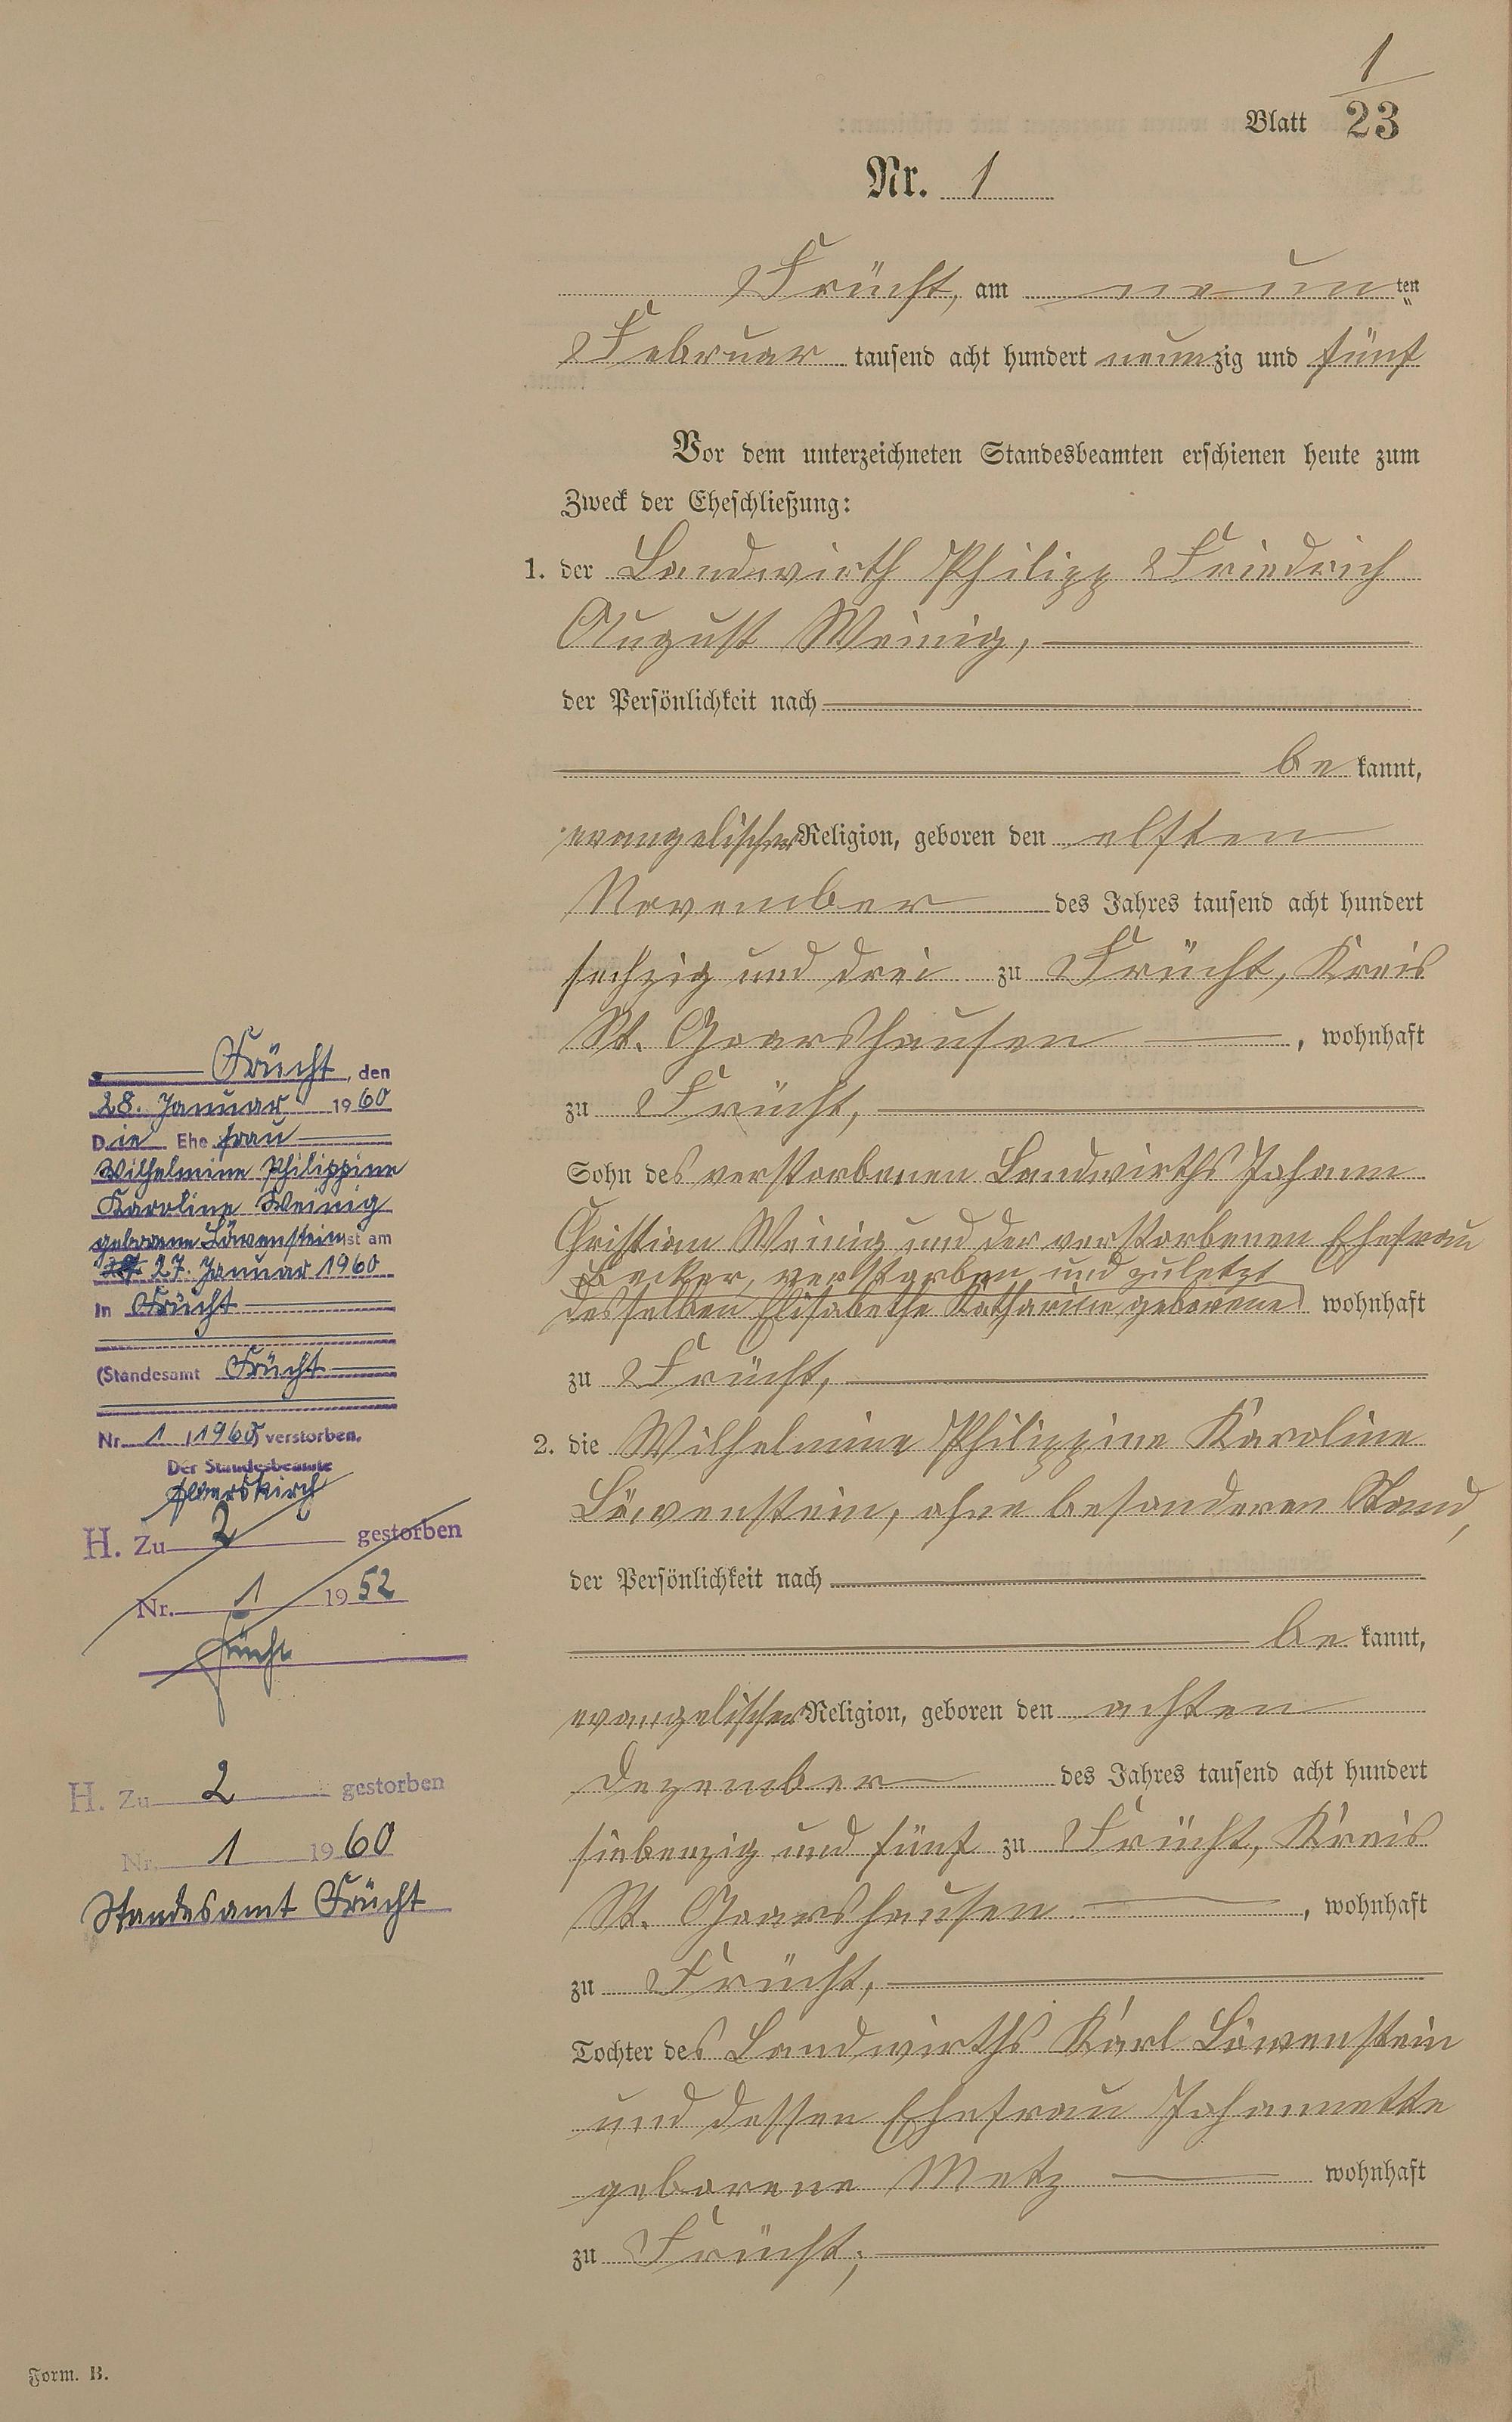 1
Blatt 23
Nr. 1
Frücht, am neunten
Februar tausend acht hundert neunzig und fünf
Vor dem unterzeichneten Standesbeamten erschienen heute zum
Zweck der Eheschließung:
1. der Landwirth Philipp Friedrich
August Weinig,
der Persönlichkeit nach
be kannt,
evangelischer Religion, geboren den elften
November des Jahres tausend acht hundert
sechzig und drei zu Frücht, Kreis
St. Goarshausen, wohnhaft
zu Frücht,
Sohn des verstorbenen Landwirths Johann
Christian Weinig und der verstorbenen Ehefrau
desselben Elisabethe Katharine geborene
Becker, verstorben und zuletzt wohnhaft
zu Frücht,
2. die Wilhelmine Philippine Karoline
Löwenstein, ohne besonderen Stand,
der Persönlichkeit nach
be kannt,
evangelischer Religion, geboren den achten
Dezember des Jahres tausend acht hundert
siebenzig und fünf zu Frücht, Kreis
St. Goarshausen, wohnhaft
zu Frücht,
Tochter des Landwirths Karl Löwenstein
und dessen Ehefrau Johannette
geborene Metz wohnhaft
zu Frücht;
Frücht, den
28. Januar 1960
Die Ehefrau
Wilhelmine Philippine
Karoline Weinig
geborene Löwenstein ist am
27. Januar 1960
in Frücht
(Standesamt Frücht
Nr. 1/1960) verstorben.
Der Standesbeamte
H. Zu 2 gestorben
Nr. 1 1952
Frücht
H. Zu 2 gestorben
Nr. 1 1960
Standesamt Frücht
Form. B.